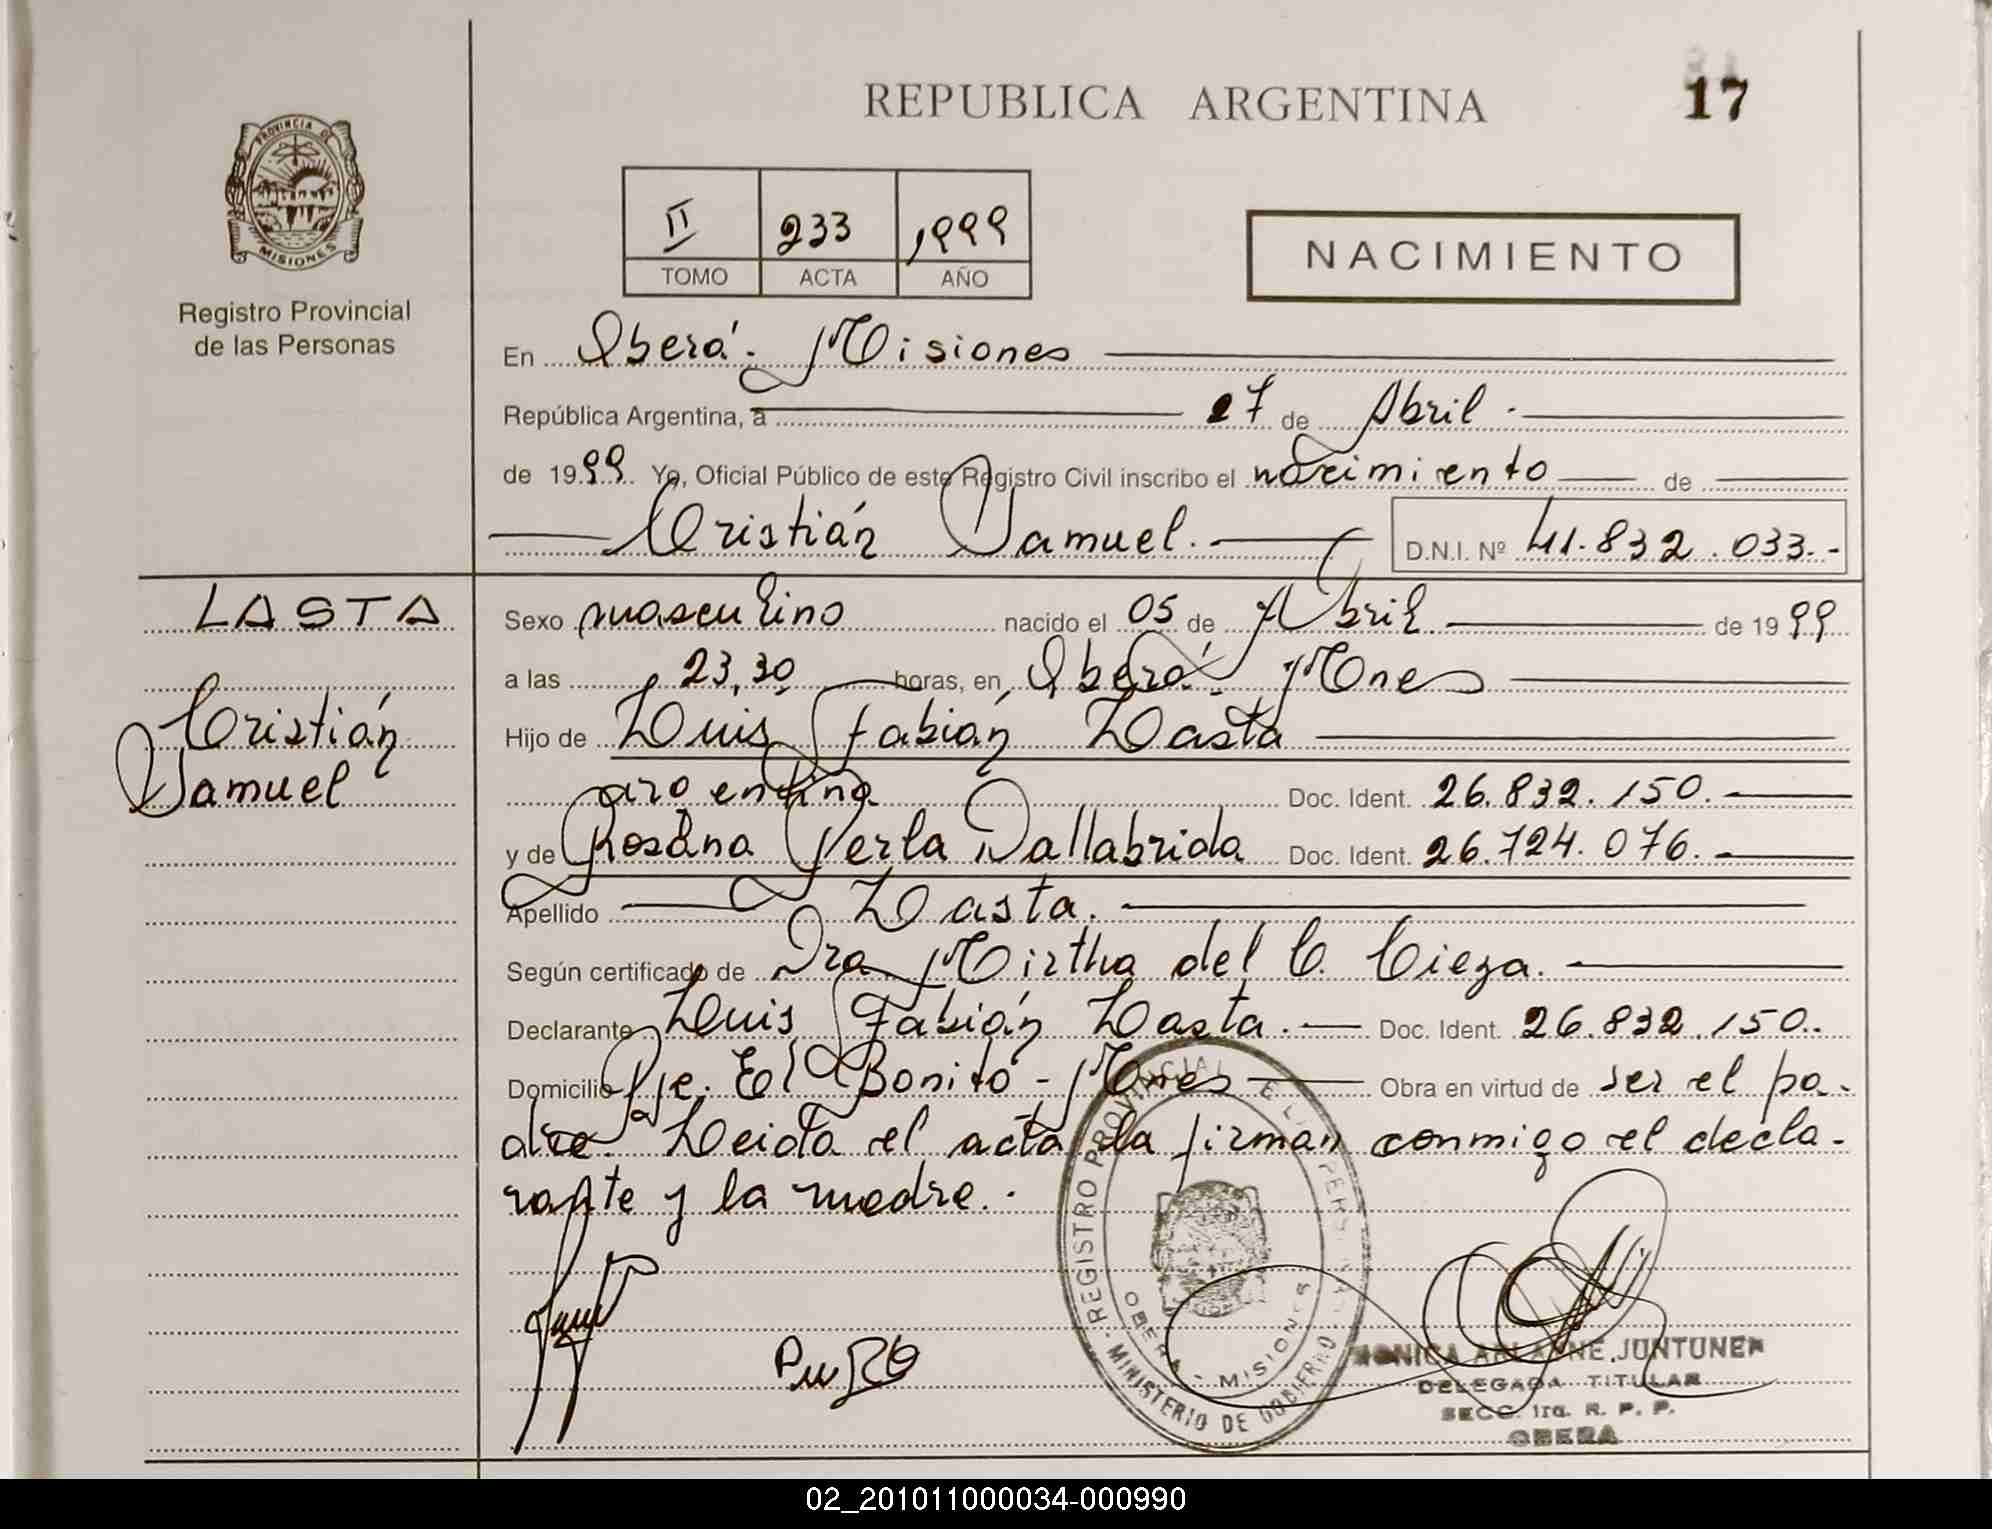 REPUBLICA ARGENTINA
17
PROVINCIA DE
MISIONES
Registro Provincial
de las Personas
II 233 1999
TOMO ACTA AÑO
NACIMIENTO
En Oberá. Misiones
República Argentina, a 27 de Abril.
de 1999 Yo, Oficial Público de este Registro Civil inscribo el nacimiento de
Cristián Samuel. D.N.I. Nº 41.832.033.-
LASTA
Cristián
Samuel
Sexo masculino nacido el 05 de Abril de 1999
a las 23,30 horas, en Oberá. Mones
Hijo de Luis Fabián Lasta
argentina Doc. Ident. 26.832.150.
y de Rosana Perla Dallabrida Doc. Ident. 26.724.076.
Apellido Lasta.
Según certificado de Dra Mirtha del C. Cieza.
Declarante Luis Fabián Lasta. Doc. Ident. 26.832.150.
Domicilio Pje. El Bonito - Mones Obra en virtud de ser el pa-
dre. Leida el acta la firman conmigo el decla-
rante y la madre.
REGISTRO PROVINCIAL DE LAS PERSONAS
OBERA - MISIONES
MINISTERIO DE GOBIERNO
MONICA ARIADNE JUNTUNEN
DELEGADA TITULAR
SECC. 1ra. R. P. P.
OBERA
02_201011000034-000990